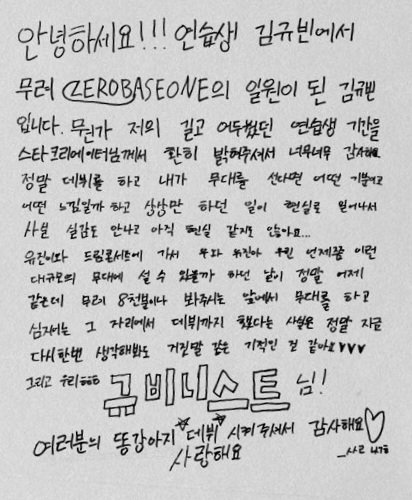 안녕하세요!!! 연습생 김규빈에서
무려 ZEROBASEONE의 일원이 된 김규빈
입니다. 무런가 저의 길고 어두웠던 연습생 기간을
스타크리에이터님께서 환히 밝혀주셔서 너무너무 감사해요
정말 데뷔를 하고 내가 무대를 선다면 어떤 기분이고
어떤 느낌일까 하고 상상만 하던 일이 현실로 일어나서
사실 실감도 안나고 아직 현실 같지도 않아요...
유진이와 드림콘서트에 가서 우와 유진아 우린 언제쯤 이런
대규모의 무대에 설 수 있을까 하던 날이 정말 어제
같은데 무려 8천분이나 봐주시는 앞에서 무대를 하고
심지어는 그 자리에서 데뷔까지 했다는 사실은 정말 지금
다시한번 생각해봐도 거짓말 같은 기적인 것 같아요♥♥♥
그리고 우리
규비니스트님!
여러분의 똥강아지 데뷔 시켜주셔서 감사해요♡
사랑해요